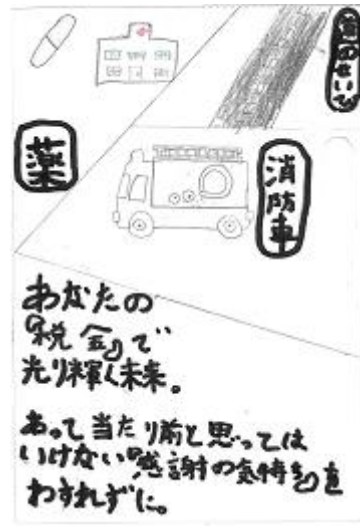 道のせいび
薬
消防車
あなたの
『税金』で
光り輝く未来。
あって当たり前と思っては
いけない『感謝の気持ち』を
わすれずに。